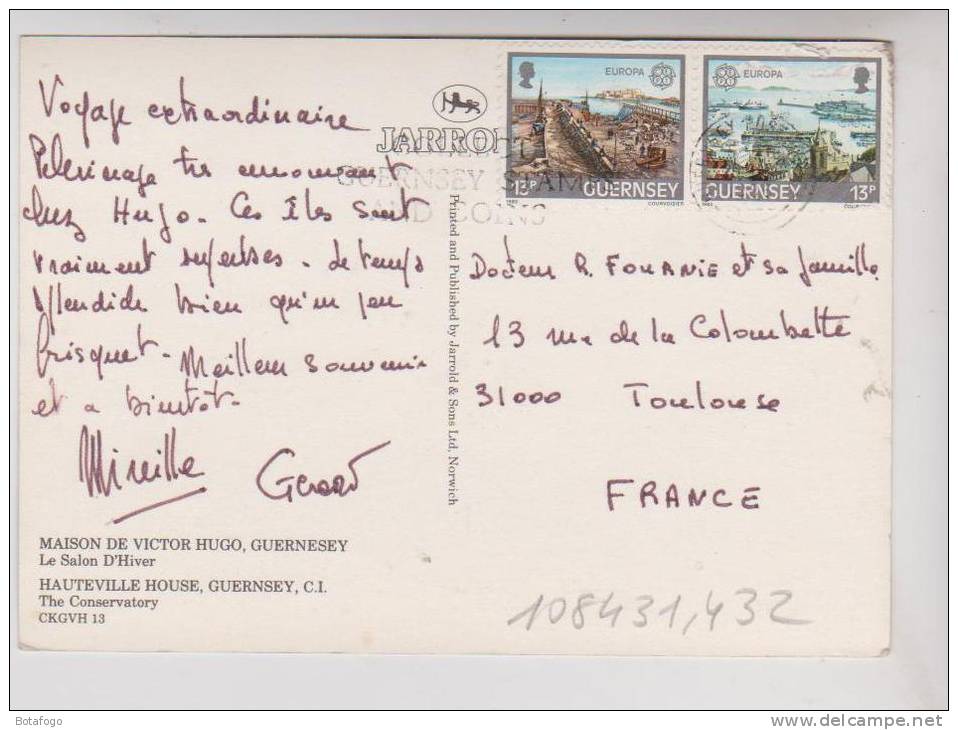 Voyage extraordinaire
Pelerinage très émouvant
chez Hugo. Ces Îles sont
vraiment superbes. Le temps
splendide bien qu'un peu
frisquet. Meilleur souvenir
et a bientôt.
Mireille Gerard
MAISON DE VICTOR HUGO, GUERNESEY
Le Salon D'Hiver
HAUTEVILLE HOUSE, GUERNSEY, C.I.
The Conservatory
CKGVH 13
JARROLD
Printed and Published by Jarrold & Sons Ltd, Norwich
EUROPA
13P GUERNSEY
COURVOISIER
EUROPA
GUERNSEY 13P
GUERNSEY STAMPS
AND COINS
Docteur R. FOURNIE et sa famille
13 rue de la Colombette
31000 Toulouse
FRANCE
108431,432
Botafogo
www.delcampe.net